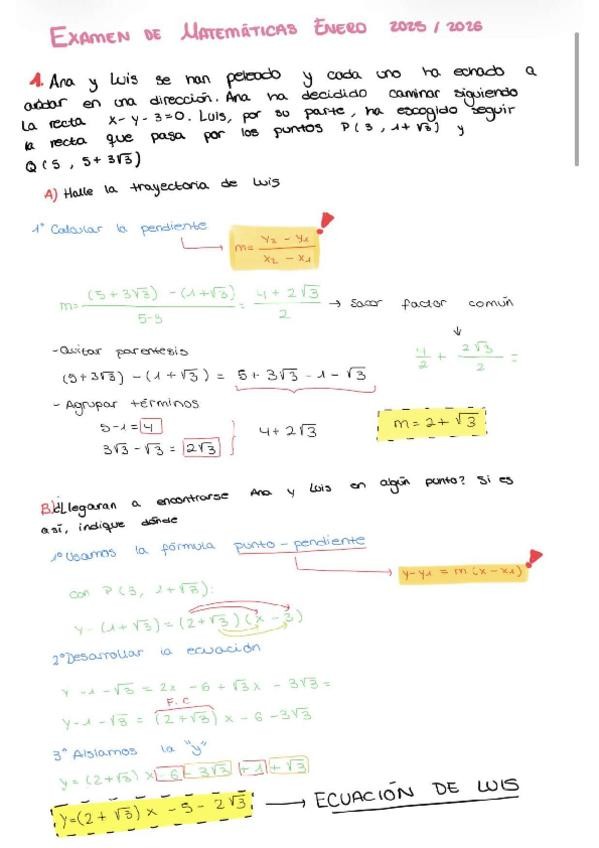 EXAMEN DE MATEMÁTICAS ENERO 2025 / 2026
1. Ana y Luis se han peleado y cada uno ha echado a
andar en una dirección. Ana ha decidido caminar siguiendo
la recta x-y-3=0. Luis, por su parte, ha escogido seguir
la recta que pasa por los puntos P(3, 1+√3) y
Q(5, 5+3√3)
A) Halle la trayectoria de Luis
1º Calcular la pendiente
m= y₂ - y₁ / x₂ - x₁ !
m= (5+3√3) - (1+√3) / 5-3 = 4+2√3 / 2 → sacar factor común
4/2 + 2√3/2 =
-Quitar parentesis
(5+3√3) - (1+√3) = 5+3√3 -1-√3
- Agrupar términos
5-1=4
3√3 - √3 = 2√3
4+2√3
m=2+√3
B) ¿Llegaran a encontrarse Ana y Luis en algún punto? Si es
así, indique dónde
1º Usamos la fórmula punto-pendiente
y-y₁ = m(x-x₁) !
con P(3, 1+√3):
y-(1+√3)=(2+√3)(x-3)
2º Desarrollar la ecuación
y-1-√3 = 2x -6 +√3x - 3√3 =
F.C
y-1-√3 = (2+√3)x -6-3√3
3º Aislamos la "y"
y=(2+√3)x -6 -3√3 +1 +√3
y=(2+√3)x -5-2√3 → ECUACIÓN DE LUIS